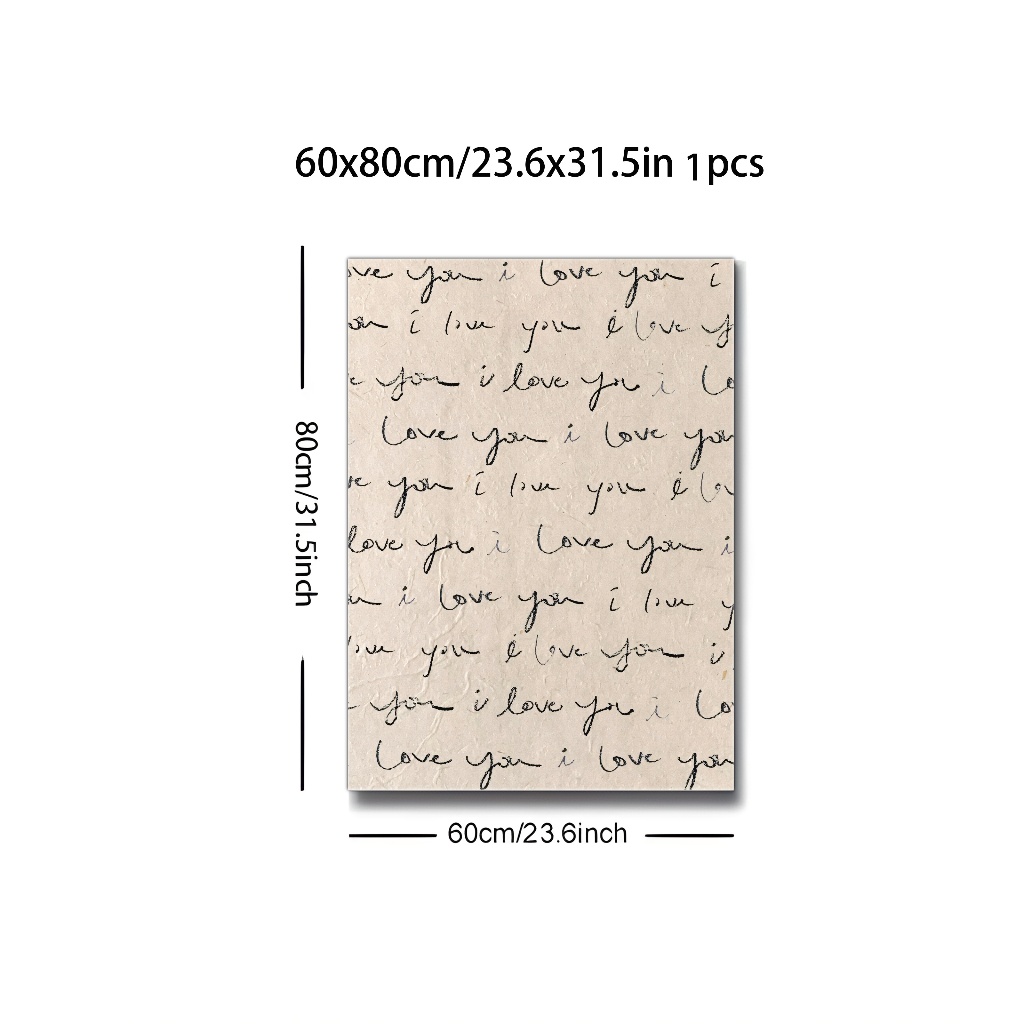 60x80cm/23.6x31.5in 1pcs
80cm/31.5inch
ove you i love you i
ou i love you i love y
e you i love you i lo
love you i love you
ve you i love you i lov
love you i love you i
ou i love you i love y
love you i love you i
you i love you i lo
love you i love you
60cm/23.6inch